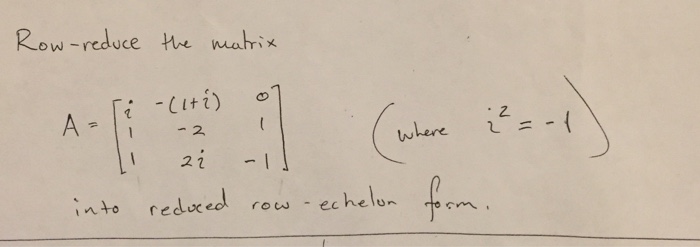 Row-reduce the matrix
i -(1+i) 0
A = 1 -2 1 (where i² = -1)
1 2i -1
into reduced row-echelon form.